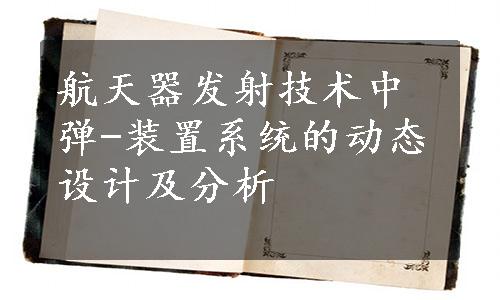 航天器发射技术中
弹-装置系统的动态
设计及分析